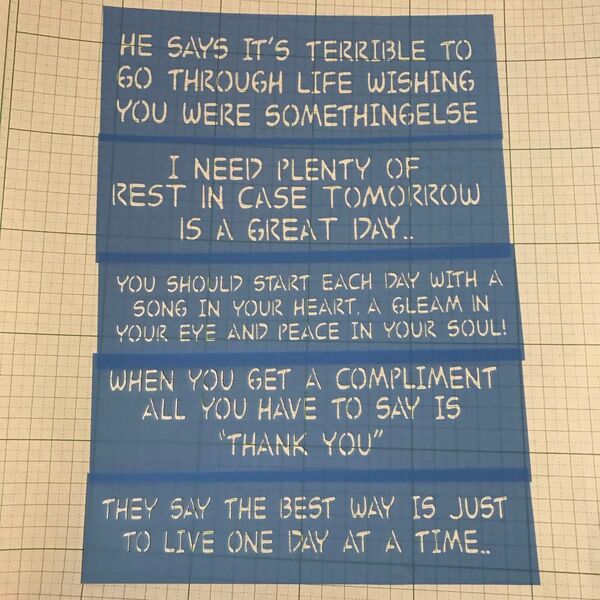 HE SAYS IT'S TERRIBLE TO
GO THROUGH LIFE WISHING
YOU WERE SOMETHINGELSE
I NEED PLENTY OF
REST IN CASE TOMORROW
IS A GREAT DAY..
YOU SHOULD START EACH DAY WITH A
SONG IN YOUR HEART. A GLEAM IN
YOUR EYE AND PEACE IN YOUR SOUL!
WHEN YOU GET A COMPLIMENT
ALL YOU HAVE TO SAY IS
"THANK YOU"
THEY SAY THE BEST WAY IS JUST
TO LIVE ONE DAY AT A TIME..